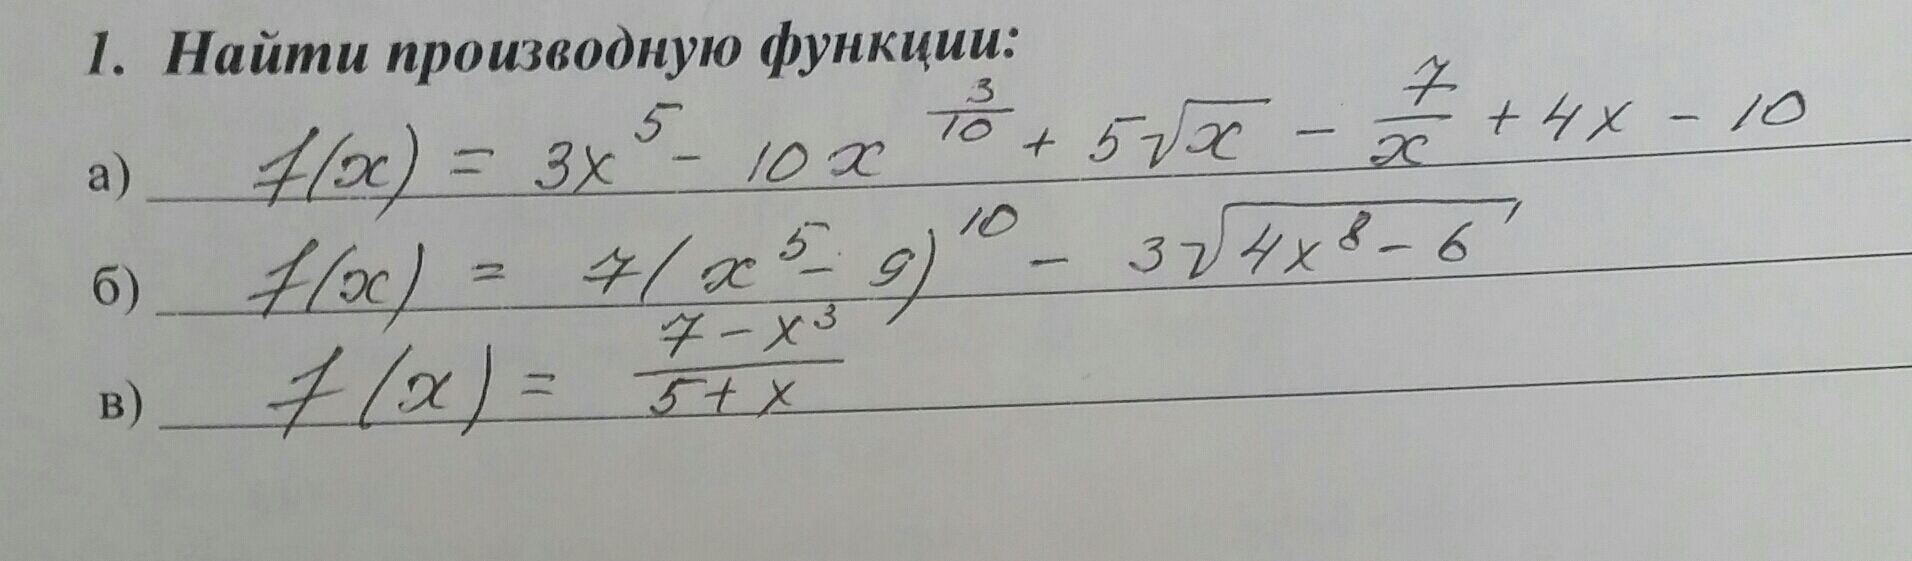 1. Найти производную функции:
а) f(x) = 3x^5 - 10x^(3/10) + 5√x - 7/x + 4x - 10
б) f(x) = 7(x^5 - 9)^10 - 3√(4x^8 - 6)
в) f(x) = (7 - x^3)/(5 + x)